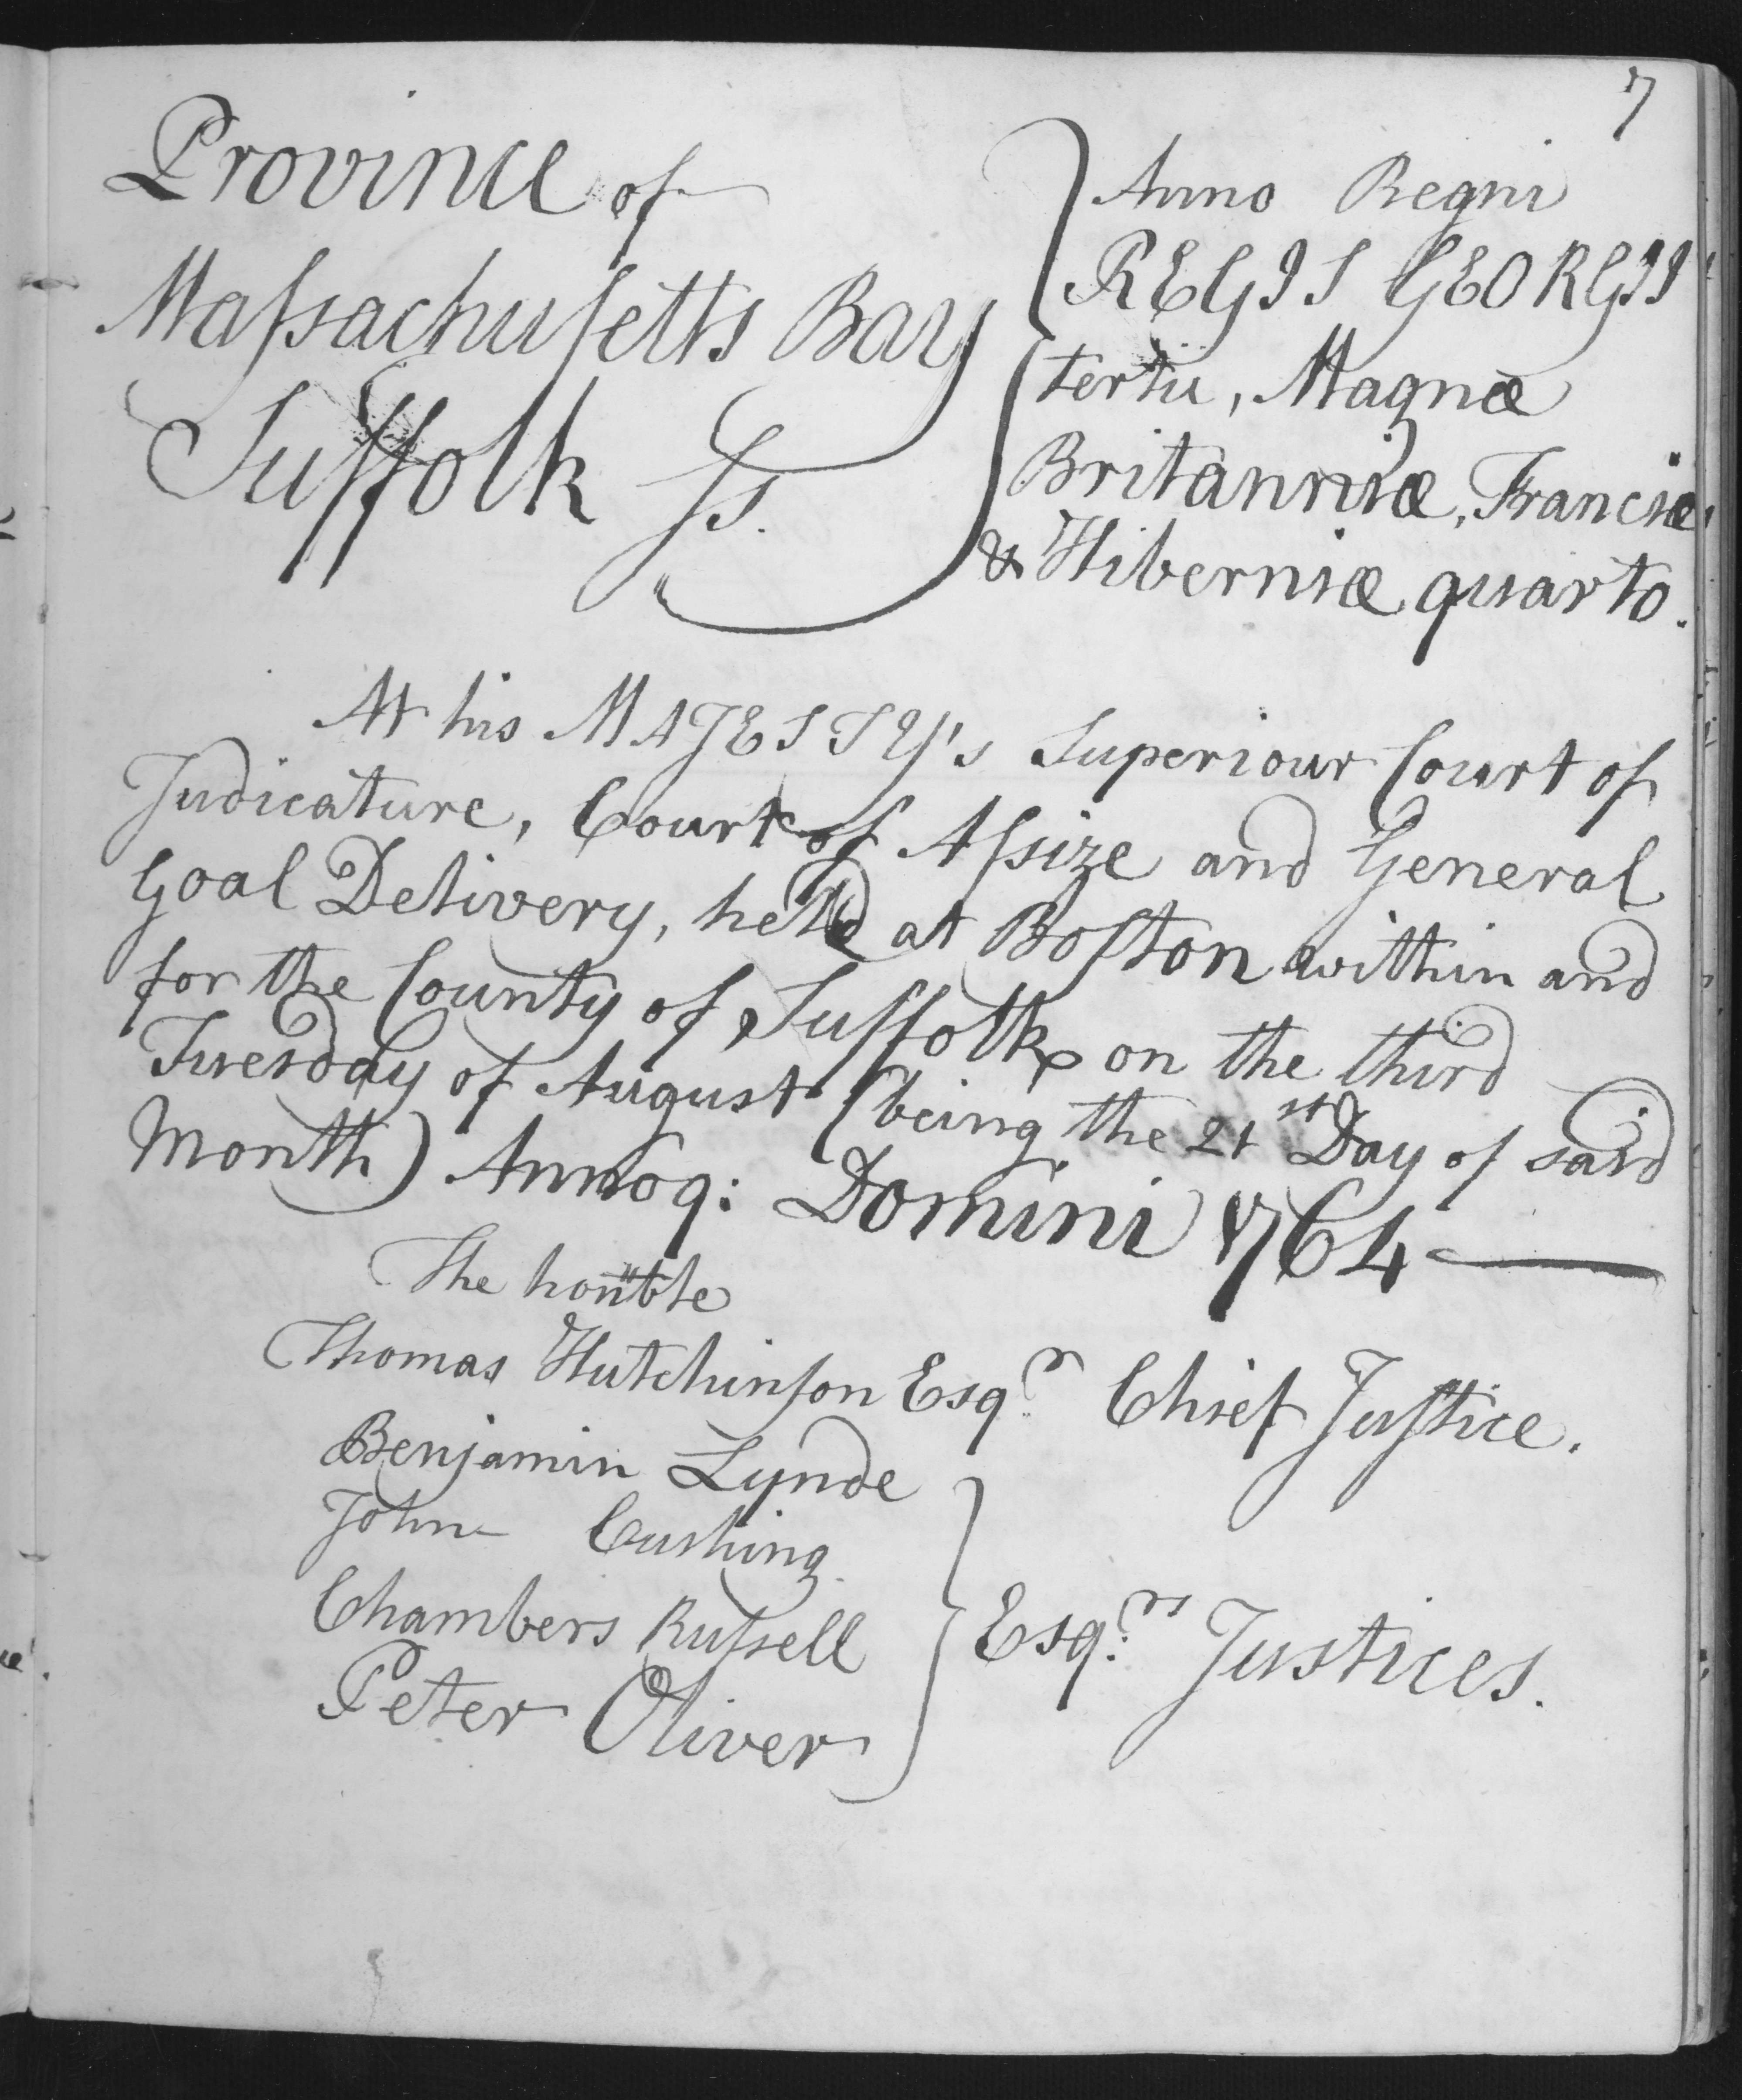 7
Province of
Massachusetts Bay
Suffolk Ss.
Anno Regni
REGIS GEORGII
tertii, Magnæ
Britanniæ, Franciæ,
& Hiberniæ quarto.
At his MAJESTY's Superiour Court of
Judicature, Court of Assize and General
Goal Delivery, held at Boston within and
for the County of Suffolk on the third
Tuesday of August (being the 21st Day of said
Month) Annoq: Domini 1764
The honble
Thomas Hutchinson Esqr Chief Justice.
Benjamin Lynde
John Cushing
Chambers Russell
Peter Oliver
Esqrs Justices.